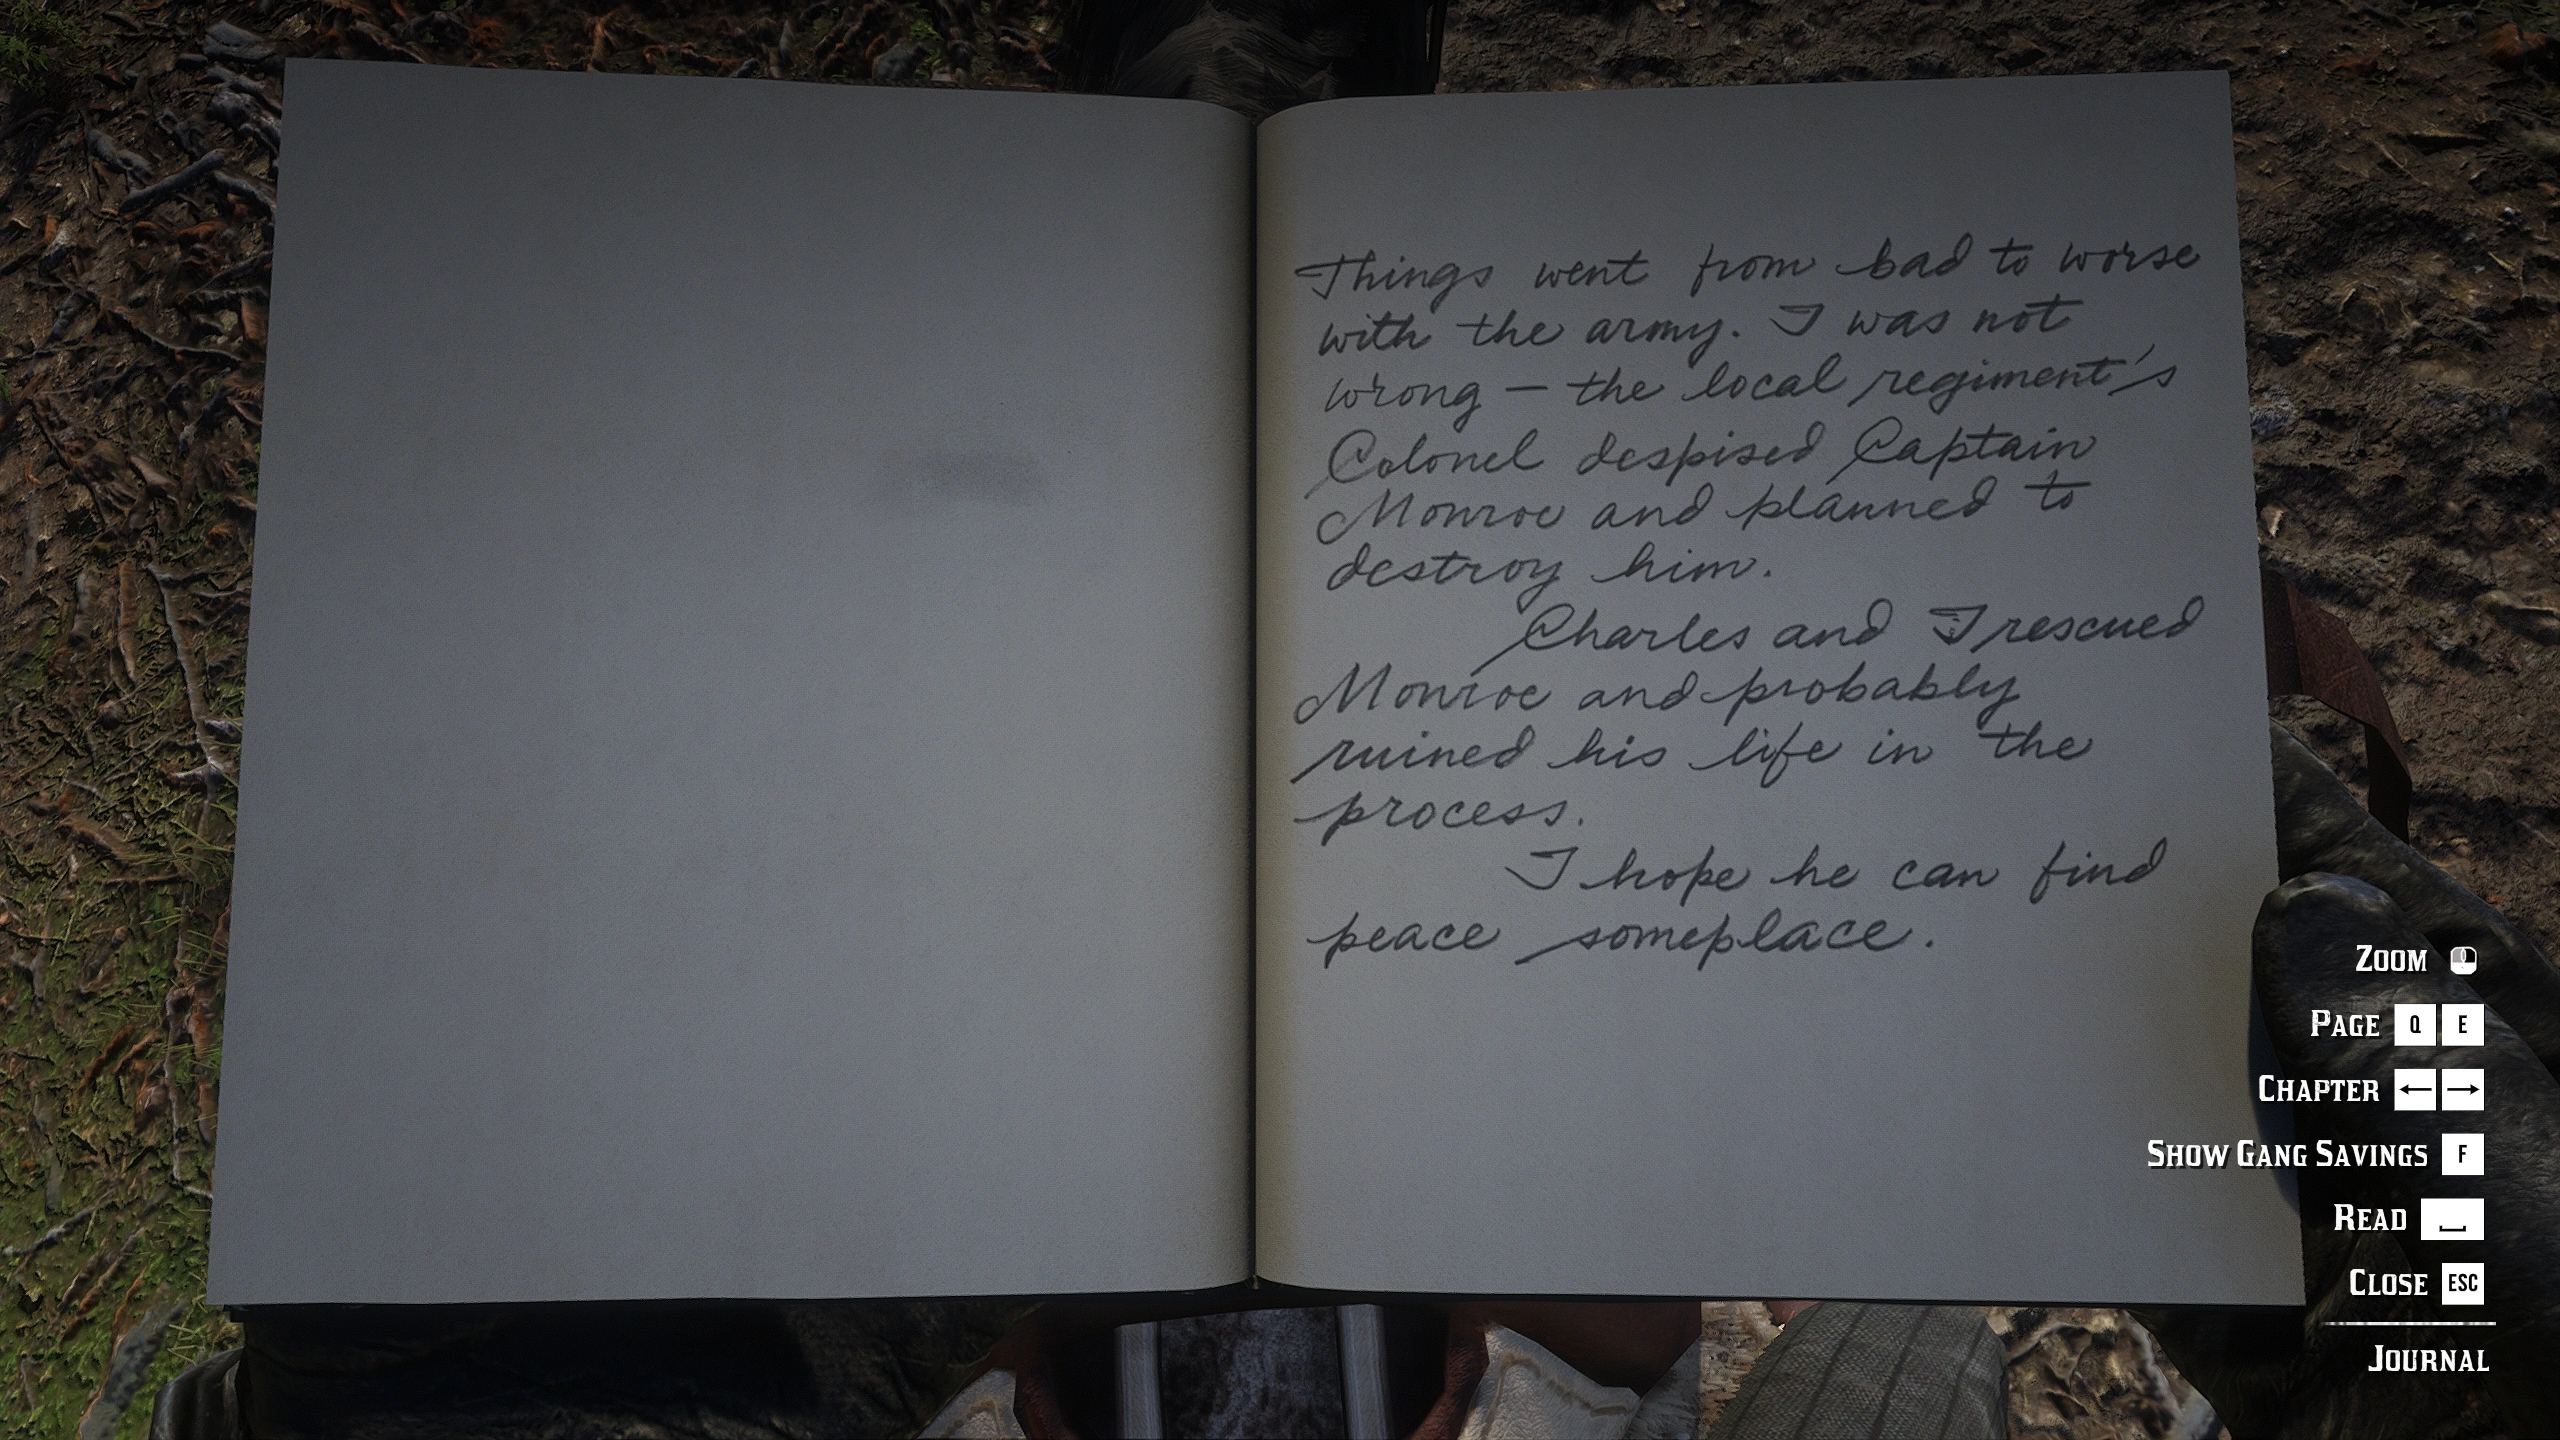 Things went from bad to worse
with the army. I was not
wrong – the local regiment's
Colonel despised Captain
Monroe and planned to
destroy him.
Charles and I rescued
Monroe and probably
ruined his life in the
process.
I hope he can find
peace someplace.
ZOOM
PAGE Q E
CHAPTER ← →
SHOW GANG SAVINGS F
READ
CLOSE ESC
JOURNAL